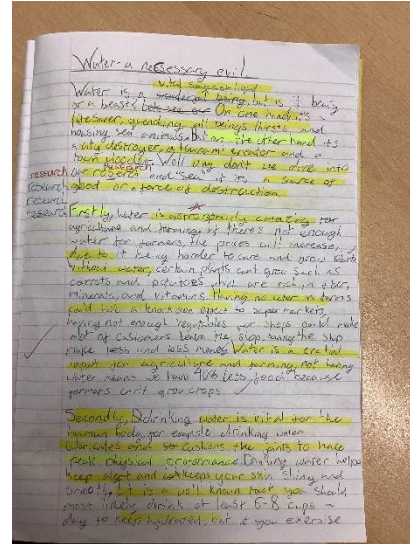 Water - a necessary evil
vital sanctified
Water is a being but is it being
or a beast On one hand it's a
lifesaver, quenching all beings thirst and
housing sea animals. But on the other hand its
a city destroyer, a tsunami creator and a
town flooder. Well why don't we dive into
research
our research and "sea" if it's a source of
research
good or a force of destruction.
research
research
Firstly, Water is astronomicly amazing for
agriculture and farming, if there's not enough
water for farmers, the prices will increase,
due to it being harder to care and grow
Without water, certain plants cant grow such as
carrots and potatoes which are rich in fiber,
minerals, and vitamins. Having no water in farms
could have a knock on effect to supermarkets,
having not enough vegetables our shops could make
alot of customers leave the shop, having the shop
make less and less money. Water is a crucial
input for agriculture and farming, not having
water means we have 40% less food because
farmers can't grow crops.
Secondly, drinking water is vital for the
human body, for example drinking water
lubricates and cushions the joints to have
peak physical Drinking water helps
keep and keeps your skin shiny and
smooth. It is a well known fact you should
most likely drink at least 6-8 cups a
day to keep hydrated, but if you exercise